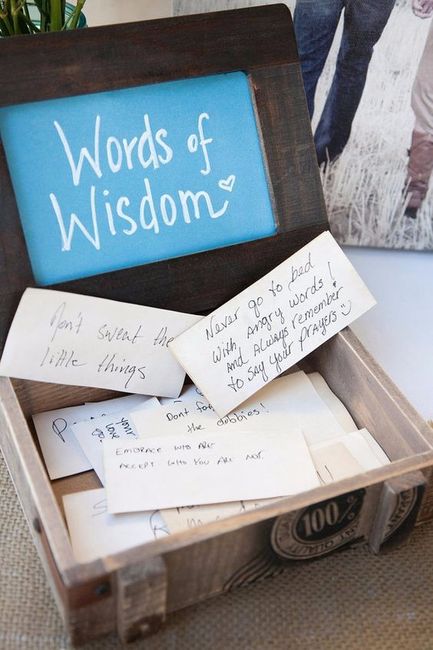 Words of
Wisdom
Don't sweat the
little things
Never go to bed
with angry words!
And Always remember
to say your prayers
Dont
the dobbies!
your
love
EMBRACE WHO ARE
ACCEPT WHO YOU ARE NOT.
100%
QUALITY